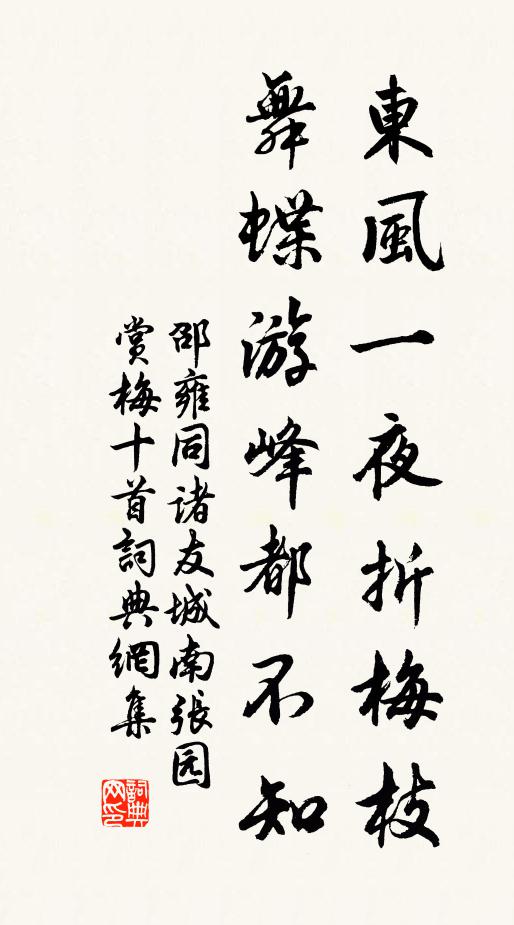 東風一夜折梅枝
舞蝶游峰都不知
邵雍同诸友城南張园
賞梅十首詞典網集
詞典
网印